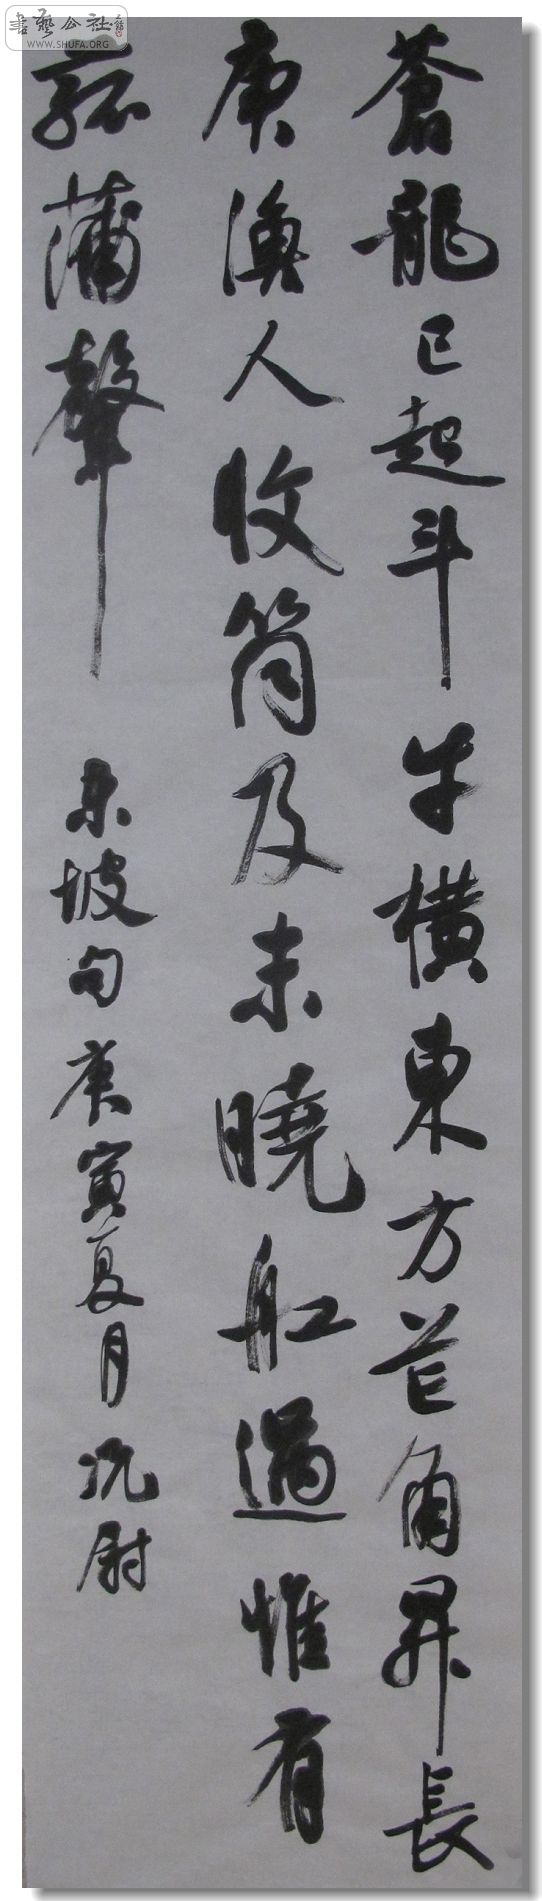 蒼龍已起斗牛橫東方芒角昇長
庚漁人收筒及未曉舡過惟有
菰蒲聲
東坡句庚寅夏月沉尉
書藝公社
WWW.SHUFA.ORG